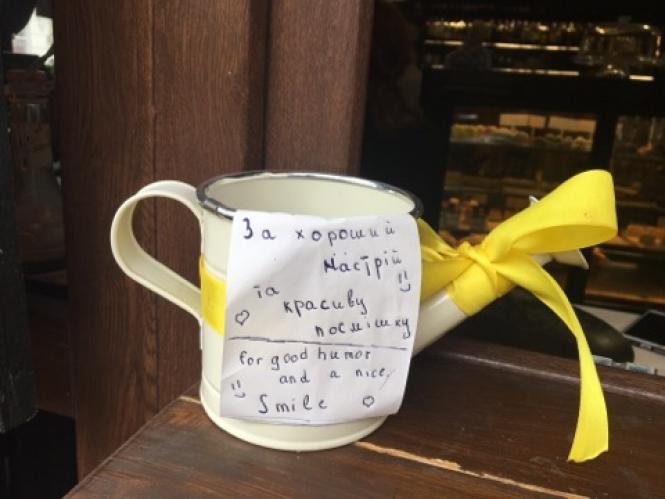 За хороший
настрій
та
красиву
посмішку
for good humor
and a nice,
Smile